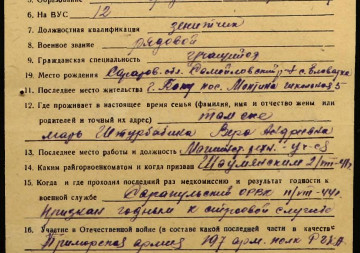 6. На ВУС 12
7. Должностная квалификация зенитчик
8. Военное звание рядовой
9. Гражданская специальность учащийся
10. Место рождения Саратов. обл. Самойловский р-н с.
11. Последнее место жительства г. Баку пос.
12. Где проживает в настоящее время семья (фамилия, имя и отчество жены или
родителей и точный их адрес) там же
мать Штурбабина Вера Андреевна
13. Последнее место работы и должность
14. Каким райгорвоенкоматом и когда призван Шаумянским
15. Когда и где проходил последний раз медкомиссию и результат годности к
военной службе Сарапульский ОРВК
Признан годным к строевой службе
16. Участие в Отечественной войне (в составе какой последней части в качестве
Приморская армия 197 полк